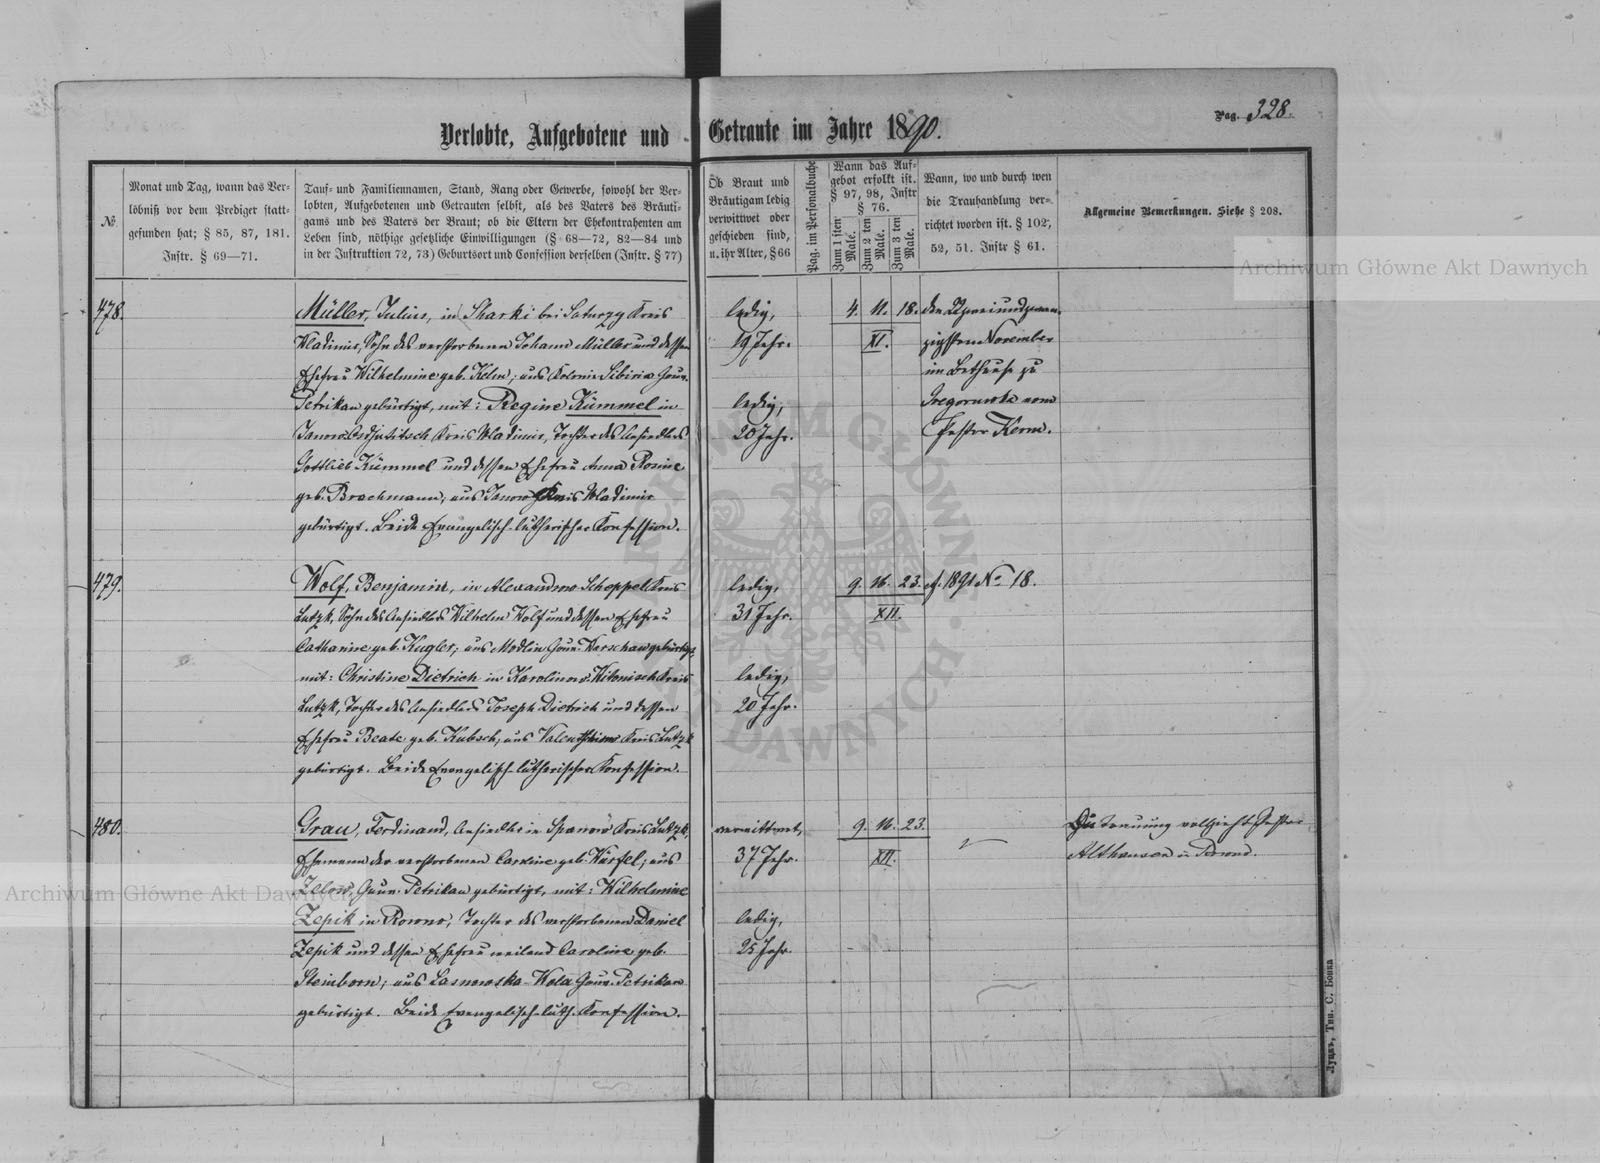 Pag. 328.
Verlobte, Aufgebotene und Getraute im Jahre 1890.
№
Monat und Tag, wann das Ver-
löbniß vor dem Prediger statt-
gefunden hat; § 85, 87, 181.
Instr. § 69—71.
Tauf- und Familiennamen, Stand, Rang oder Gewerbe, sowohl der Ver-
lobten, Aufgebotenen und Getrauten selbst, als des Vaters des Bräuti-
gams und des Vaters der Braut; ob die Eltern der Ehekontrahenten am
Leben sind, nöthige gesetzliche Einwilligungen (§ 68—72, 82—84 und
in der Instruktion 72, 73) Geburtsort und Confession derselben (Instr. § 77)
Ob Braut und
Bräutigam ledig
verwittwet oder
geschieden sind,
u. ihr Alter, § 66
Pag. im Personalbuche
Wann das Auf-
gebot erfolkt ist.
§ 97, 98, Instr
§ 76.
Zum 1 sten Male.
Zum 2 ten Male.
Zum 3 ten Male.
Wann, wo und durch wen
die Trauhandlung ver-
richtet worden ist. § 102,
52, 51. Instr § 61.
Allgemeine Bemerkungen. Siehe § 208.
478.
Müller, Julius, in Skarki bei Saturzy Kreis
Wladimir, Sohn des verstorbenen Johann Müller und dessen
Ehefrau Wilhelmine geb. Kelm; aus Kolonie Sibirien Gouv.
Petrikau gebürtigt, mit: Regine Kümmel in
Kreis Wladimir, Tochter des Ansiedlers
Gottlieb Kümmel und dessen Ehefrau Anna Rosine
geb. Brachmann, aus Janow Kreis Wladimir
gebürtigt. Beide Evangelisch-lutherischer Konfession.
ledig,
19 Jahr.
ledig,
20 Jahr.
4. 11. 18.
XI.
den Zweiundzwan-
zigsten November
im Bethause zu
vom
Pastor Kerm.
479.
Wolf, Benjamin, in Alexandrow-Scheppel Kreis
Lutzk, Sohn des Ansiedlers Wilhelm Wolf und dessen Ehefrau
Catharine geb. Kugler; aus Modlin Gouv. Warschau gebürtigt,
mit: Christine Dietrich in Karolinow-Witonisch Kreis
Lutzk, Tochter des Ansiedlers Joseph Dietrich und dessen
Ehefrau Beate geb. Kubsch, aus Kreis Lutzk
gebürtigt. Beide Evangelisch-lutherischer Konfession.
ledig,
31 Jahr.
ledig,
20 Jahr.
9. 16. 23.
XII.
cf. 1891 No 18.
480.
Grau, Ferdinand, Ansiedler in Spanow Kreis Lutzk,
Ehemann der verstorbenen Caroline geb. Würfel; aus
Zelow, Gouv. Petrikau gebürtigt, mit: Wilhelmine
Zepik in Rowno, Tochter des verstorbenen Daniel
Zepik und dessen Ehefrau weiland Caroline geb.
Steinborn; aus Lasnowska-Wola Gouv. Petrikau
gebürtigt. Beide Evangelisch-luth. Konfession.
verwittwet,
37 Jahr.
ledig,
25 Jahr.
9. 16. 23.
XII.
Die Trauung vollzieht Pastor
Althausen in Rowno.
Луцкъ, Тип. С. Бонка
Archiwum Główne Akt Dawnych
Archiwum Główne Akt Dawnych
ARCHIWUM GŁÓWNE AKT DAWNYCH